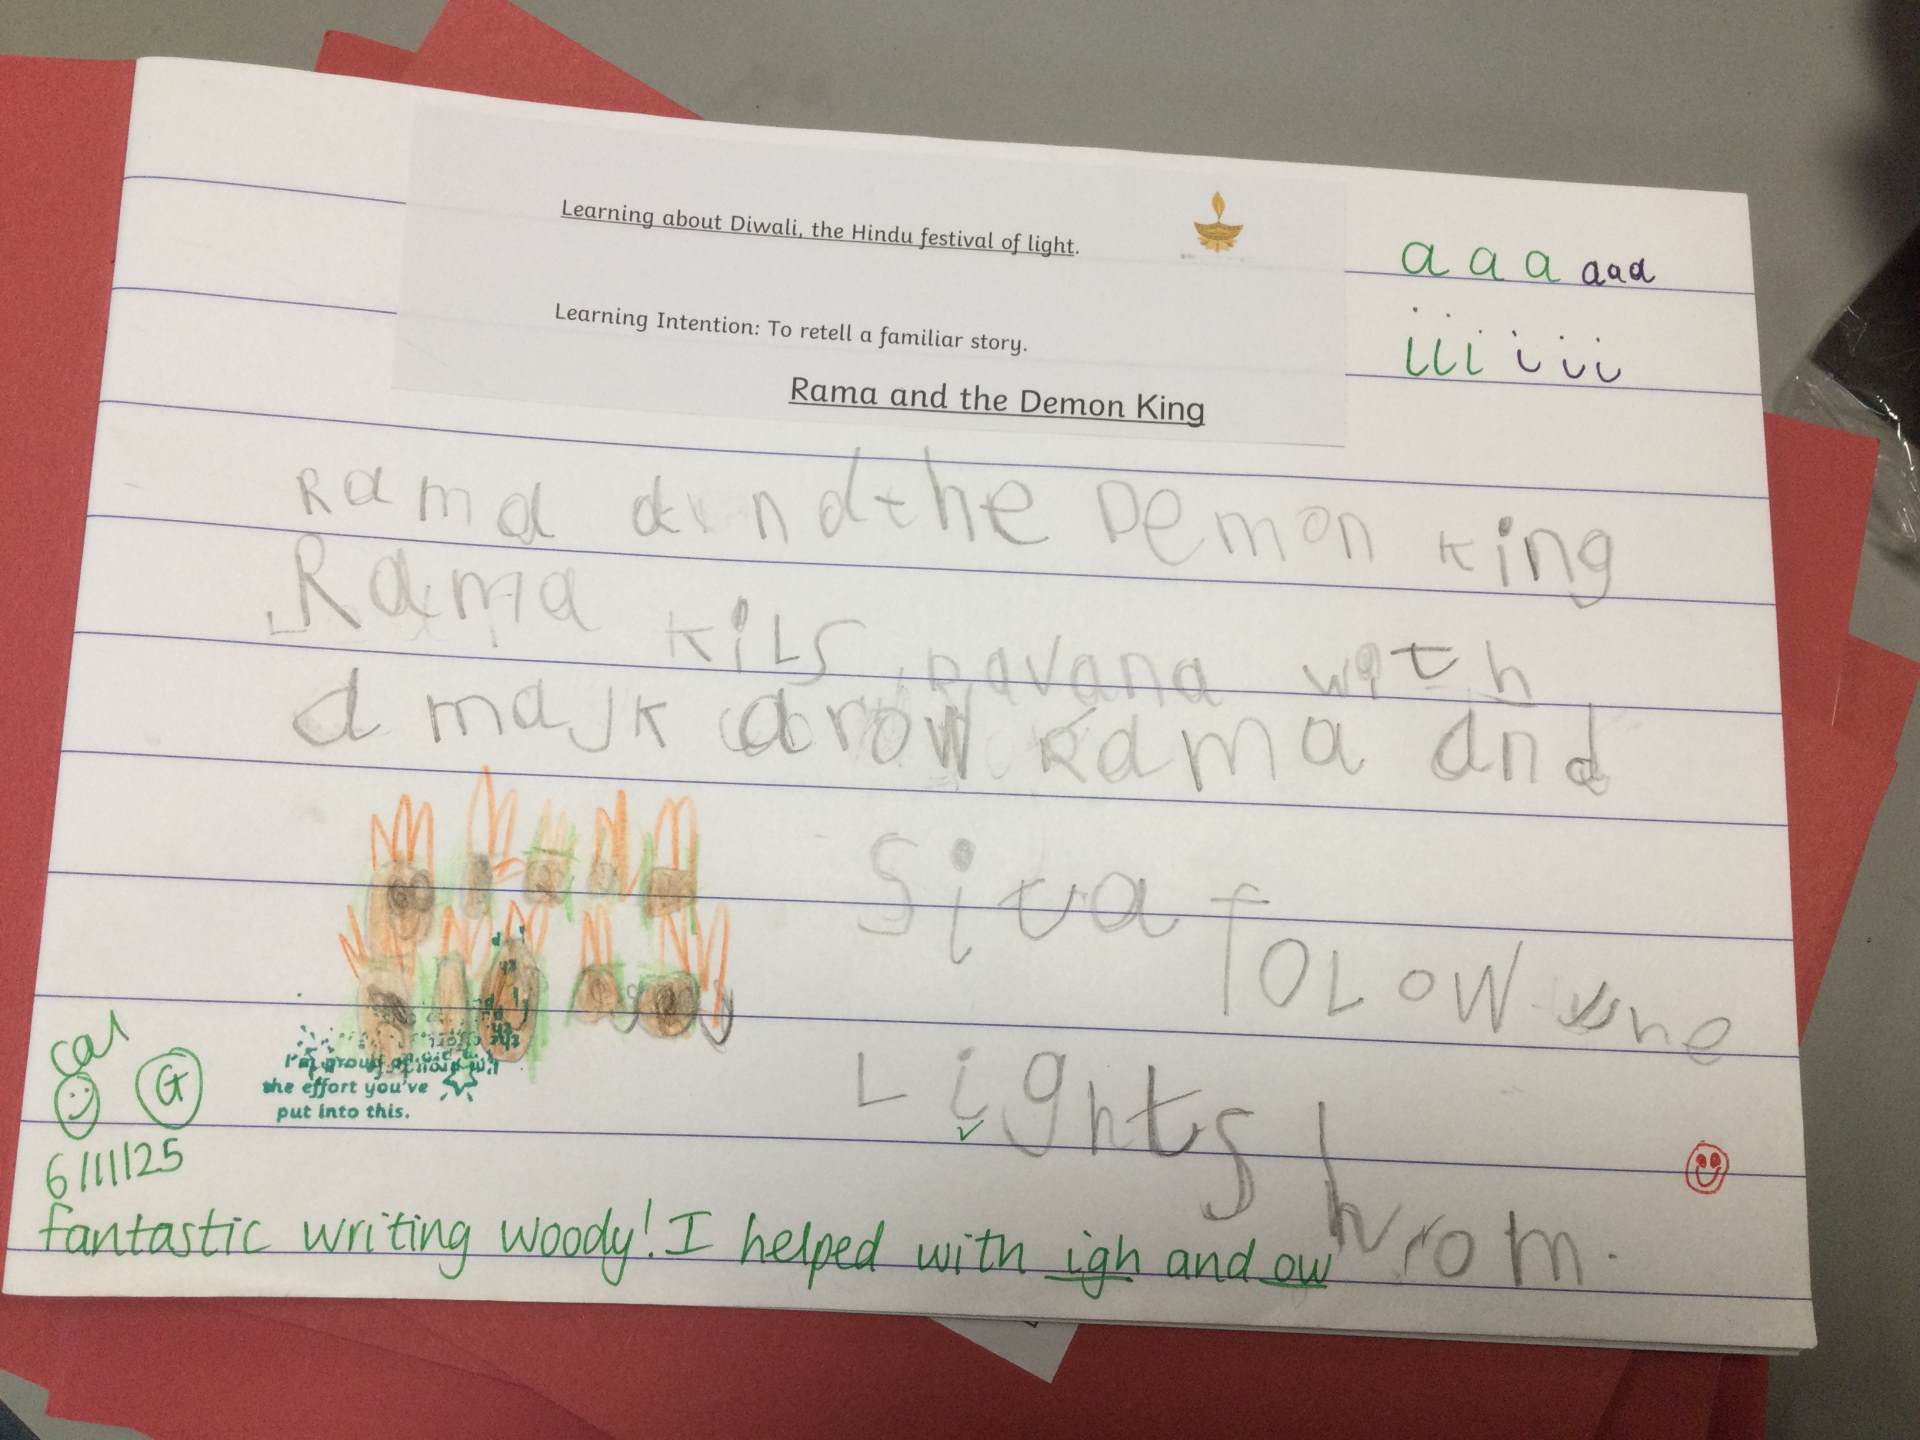 Learning about Diwali, the Hindu festival of light.
a a a a a a
Learning Intention: To retell a familiar story.
i i i i i i
Rama and the Demon King
Rama and the Demon King
Rama kiLs Ravana with
a majk arow Rama and
Sita
foLow the
Lights
hrom.
I'm proud of
the effort you've
put into this.
G
6/11/25
fantastic writing woody! I helped with igh and ow